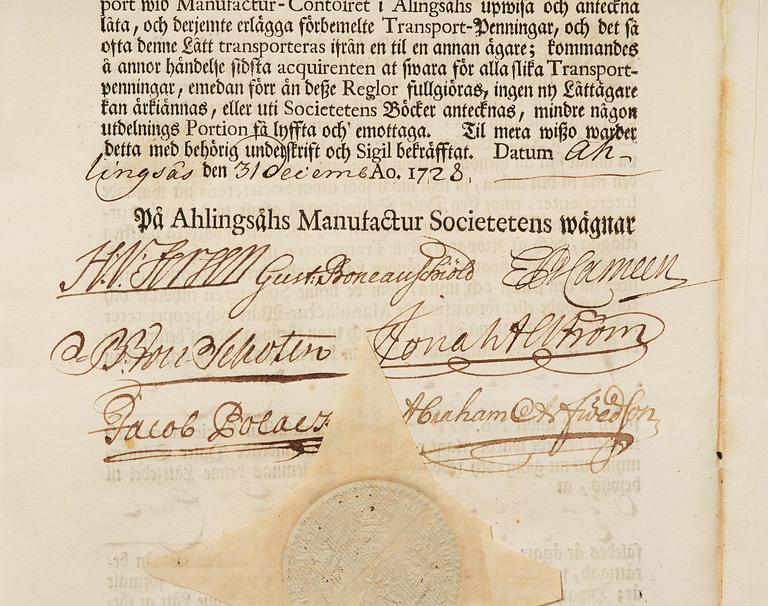 port wid Manufactur-Contoiret i Alingsåhs upwisa och anteckna
låta, och derjemte erlägga förbemelte Transport-Penningar, och det så
ofta denne Lått transporteras ifrån en til en annan ägare; kommandes
å annor händelse sidsta acquirenten at swara för alla slika Transport-
penningar, emedan förr än deße Reglor fullgiöras, ingen ny Låttägare
kan ärkiännas, eller uti Societetens Böcker antecknas, mindre någon
utdelnings Portion få lyffta och emottaga. Til mera wißo warder
detta med behörig underskrift och Sigil bekräfftat. Datum Ah-
lingsås den 31 decemb Ao. 1728.
På Ahlingsåhs Manufactur Societetens wägnar
Gust: Boneauschiöld
Jonah Alström
Jacob Abraham